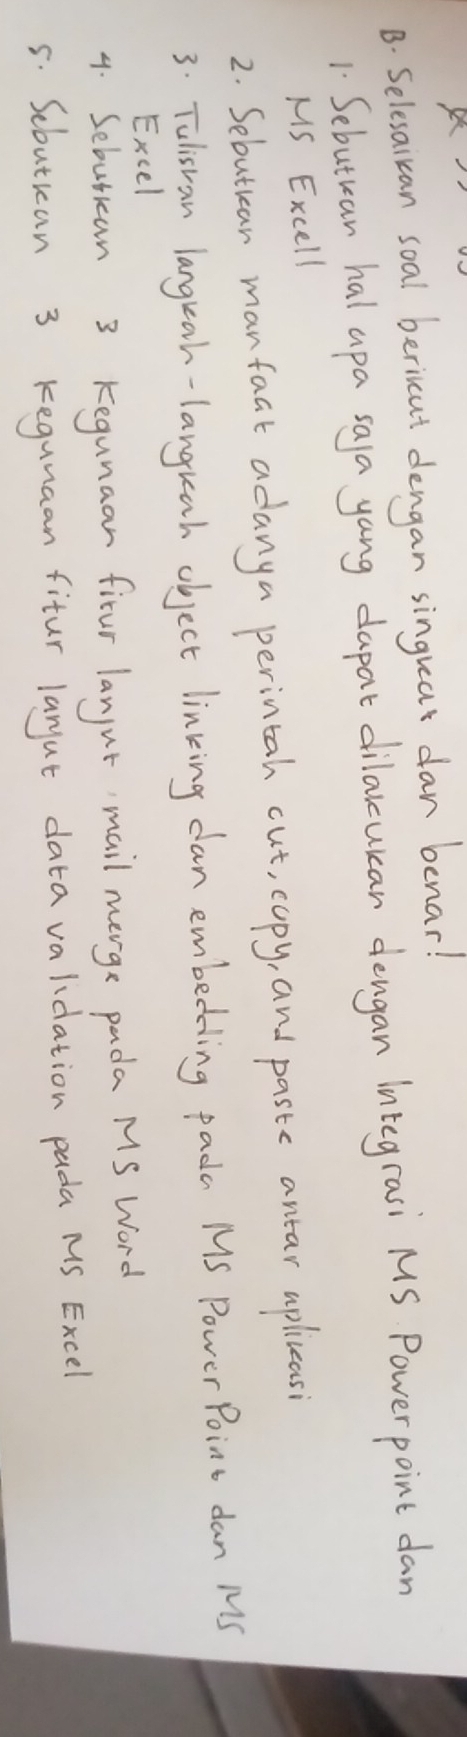 B. Selesaikan soal berikut dengan singkat dan benar!
1. Sebutkan hal apa saja yang dapat dilakukan dengan Integrasi MS Powerpoint dan
MS Excell
2. Sebutkan manfaat adanya perintah cut, copy, and paste antar aplikasi
3. Tuliskan langkah-langkah object linking dan embedding pada MS PowerPoint dan MS
Excel
4. Sebutkan 3 kegunaan fitur lanjut mail merge pada MS Word
5. Sebutkan 3 kegunaan fitur lanjut data validation pada MS Excel